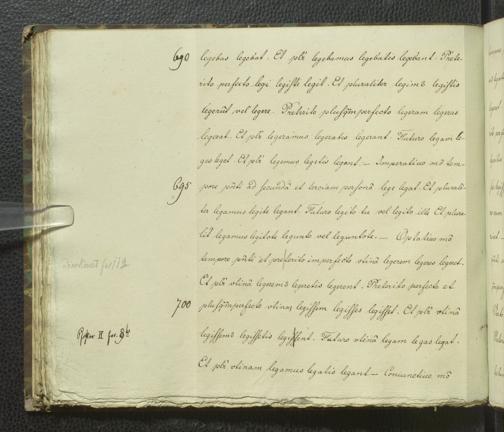 690 legebas legebat. Et plr legebamus legebatis legebant. Prete-
rito perfecto legi legisti legit. Et pluraliter legimꝰ legistis
legerūt vel legere. Preterito plusq̄mperfecto legeram legeras
legerat. Et plr legeramus legeratis legerant. Futuro legam le-
ges leget. Et plr legemus legetis legent. — Imperatiuo mō tem-
695 pore pn̄ti ad secundā et terciam personā lege legat. Et plurali-
ter legamus legite legant. Futuro legito tu vel legito ille Et plura-
lit legamus legitote legunto vel leguntote. — Optatiuo mō
tempore pn̄ti et preterito imperfecto vtinā legerem legeres legeret.
Et plr vtinā legeremꝰ legeretis legerent. Preterito perfecto et
700 plusq̄mperfecto vtinam legissem legisses legisset. Et plr vtinā
legissemꝰ legissetis legissent. Futuro vtinā legam legas legat.
II
Et plr vtinam legamus legatis legant — Coniunctiuo mō